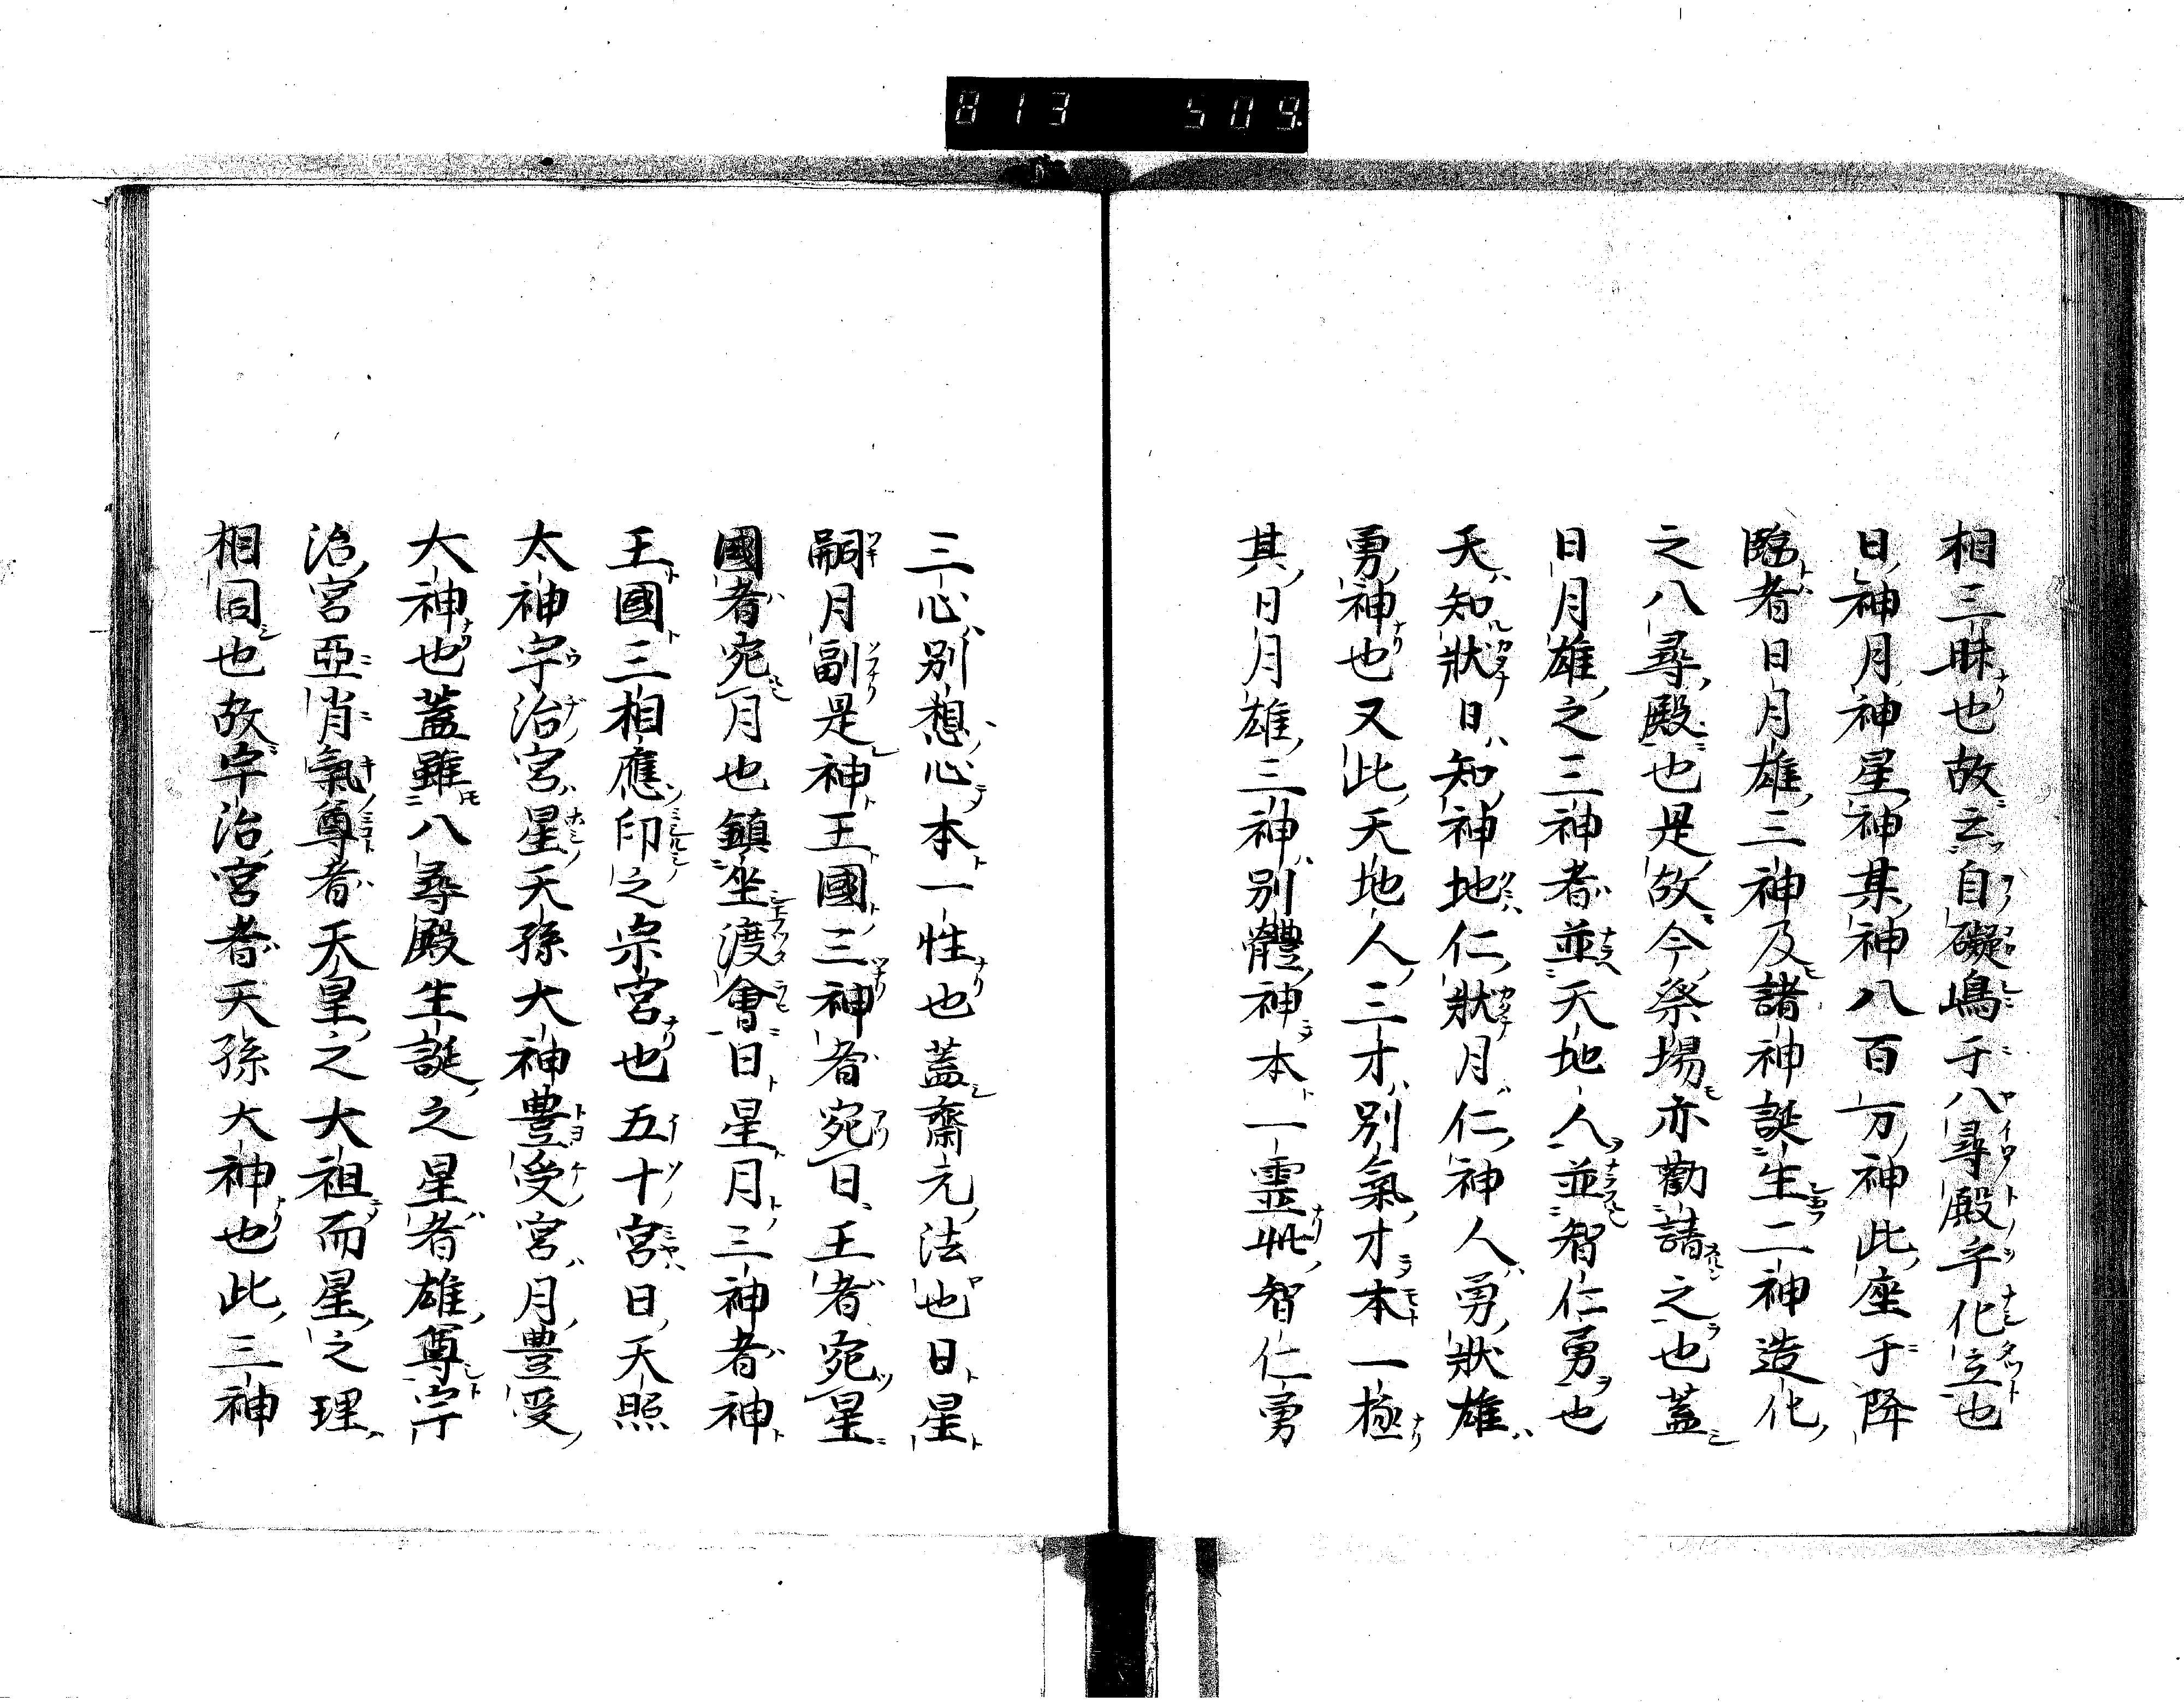 813 509
相三昧也故云自礙嶋于八尋殿乎化立也
日神月神星神某神八百万神此座于降
臨者日月雄三神及諸神誕生二神造化
之八尋殿也是故今祭場亦勸請之也蓋
日月雄之三神者並天地人並智仁勇也
天知狀日知神地仁狀月仁神人勇狀雄
勇神也又此天地人三才別氣才本一極
其日月雄三神別體神本一靈此智仁勇
三心別想心本一性也蓋齋元法也日星
嗣月副是神王國三神者宛日王者宛星
國者宛月也鎮坐渡會日星月三神者神
王國三相應印之宗宮也五十宮日天照
太神宇治宮星天孫大神豊受宮月豊受
大神也蓋雖八尋殿生誕之星者雄尊宇
治宮亞肖氣尊者天皇之大祖而星之理
相同也故宇治宮者天孫大神也此三神